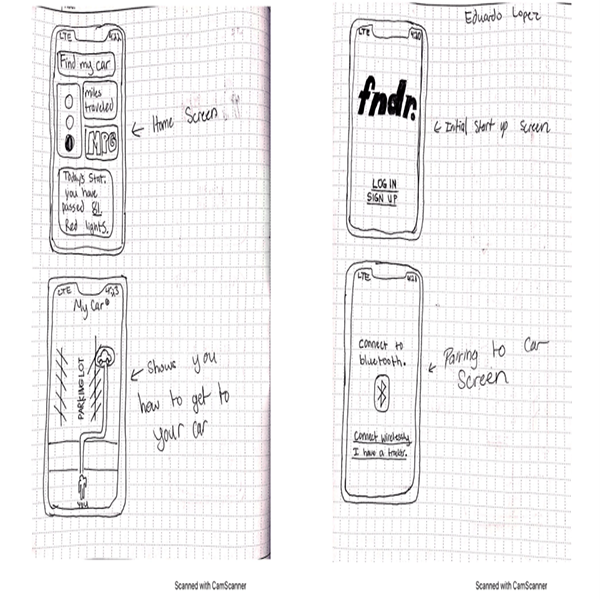 LTE 4:22
Find my car
miles
traveled
MPG
Today's Stat:
you have
passed 81
Red lights.
← Home Screen
LTE 4:23
My Car
PARKING LOT
YOU
← Shows you
how to get to
your car
Scanned with CamScanner
Eduardo Lopez
LTE 4:20
fndr.
LOG IN
SIGN UP
← Initial Start up Screen
LTE 4:21
Connect to
bluetooth.
Connect wirelessly
I have a tracker.
← Pairing to Car
Screen
Scanned with CamScanner